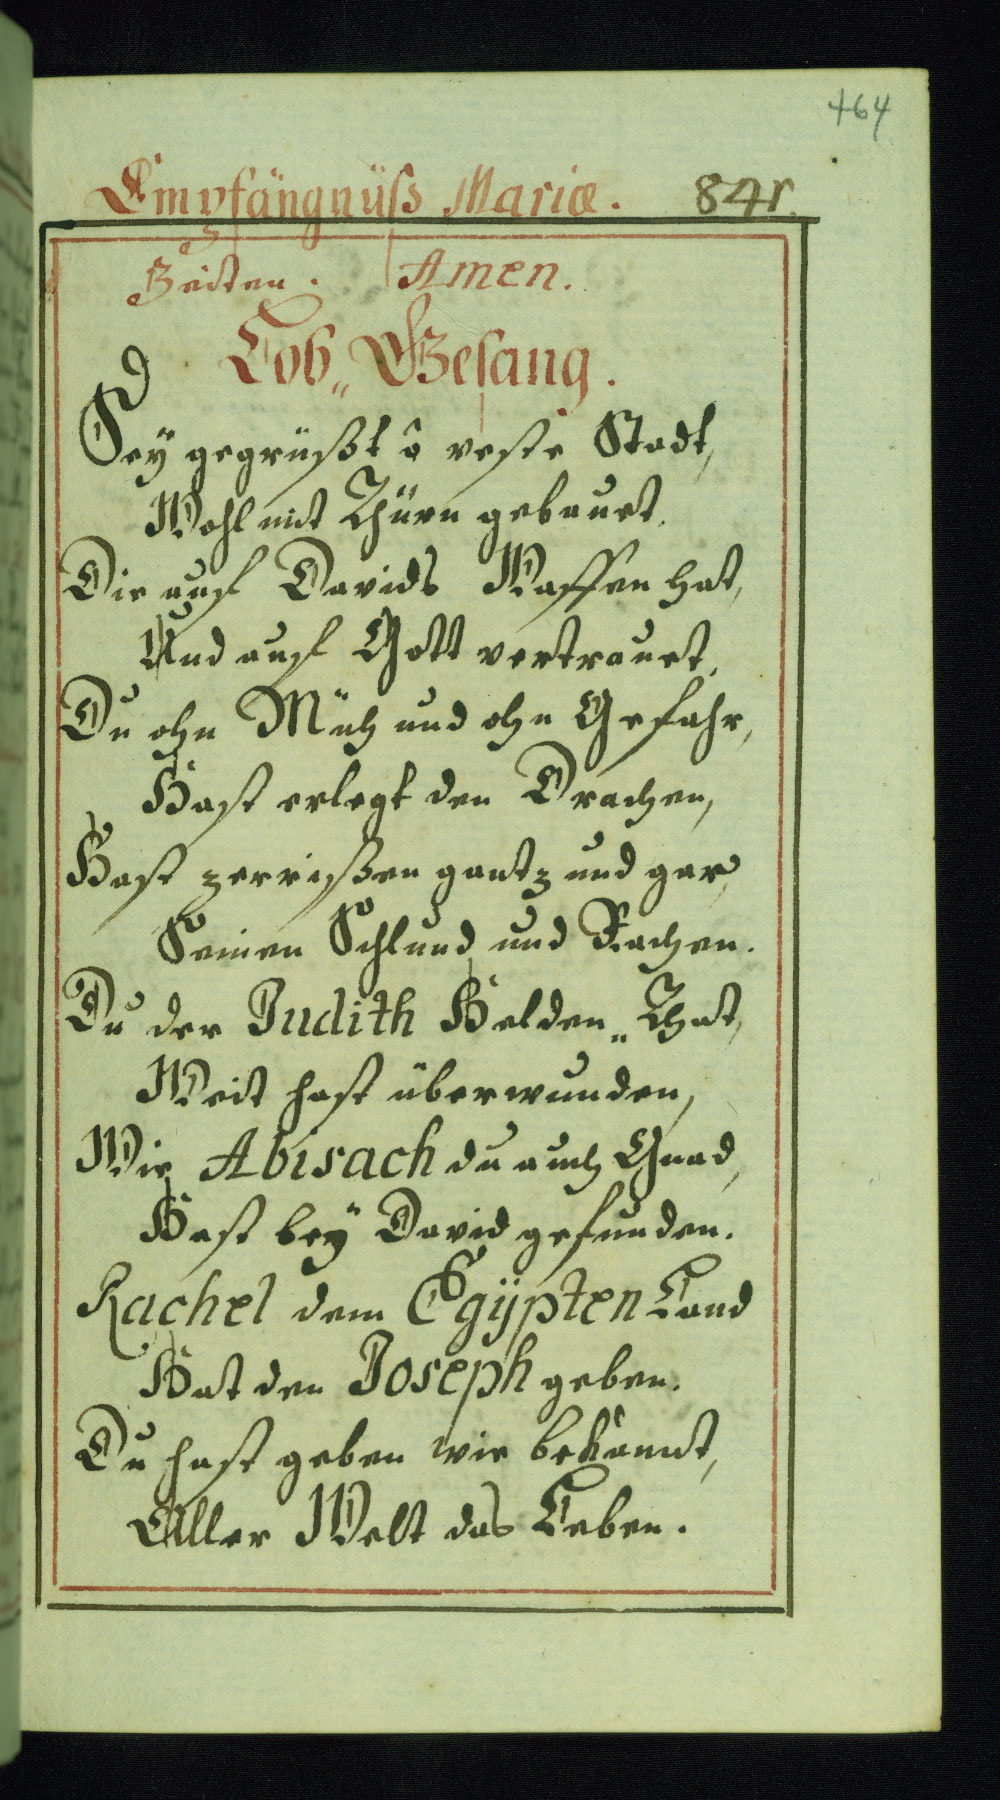 464
Empfängnüß Mariæ. 841.
Zeiten. Amen.
Lob„Gesang.
Sey gegrüßt ô veste Stadt,
Wohl mit Thürn gebauet.
Die auf Davids Waffen hat,
Und auf Gott vertrauet.
Du ohn Müh und ohn Gefahr,
Hast erlegt den Drachen,
Hast zerrißen gantz und gar,
Seinen Schlund und Rachen.
Du der Judith Helden„That,
Weit hast überwunden,
Wie Abisach du auch Gnad,
Hast beÿ David gefunden.
Rachel dem Egÿpten Land
Hat den Joseph geben.
Du hast geben wie bekannt,
Aller Welt das Leben.